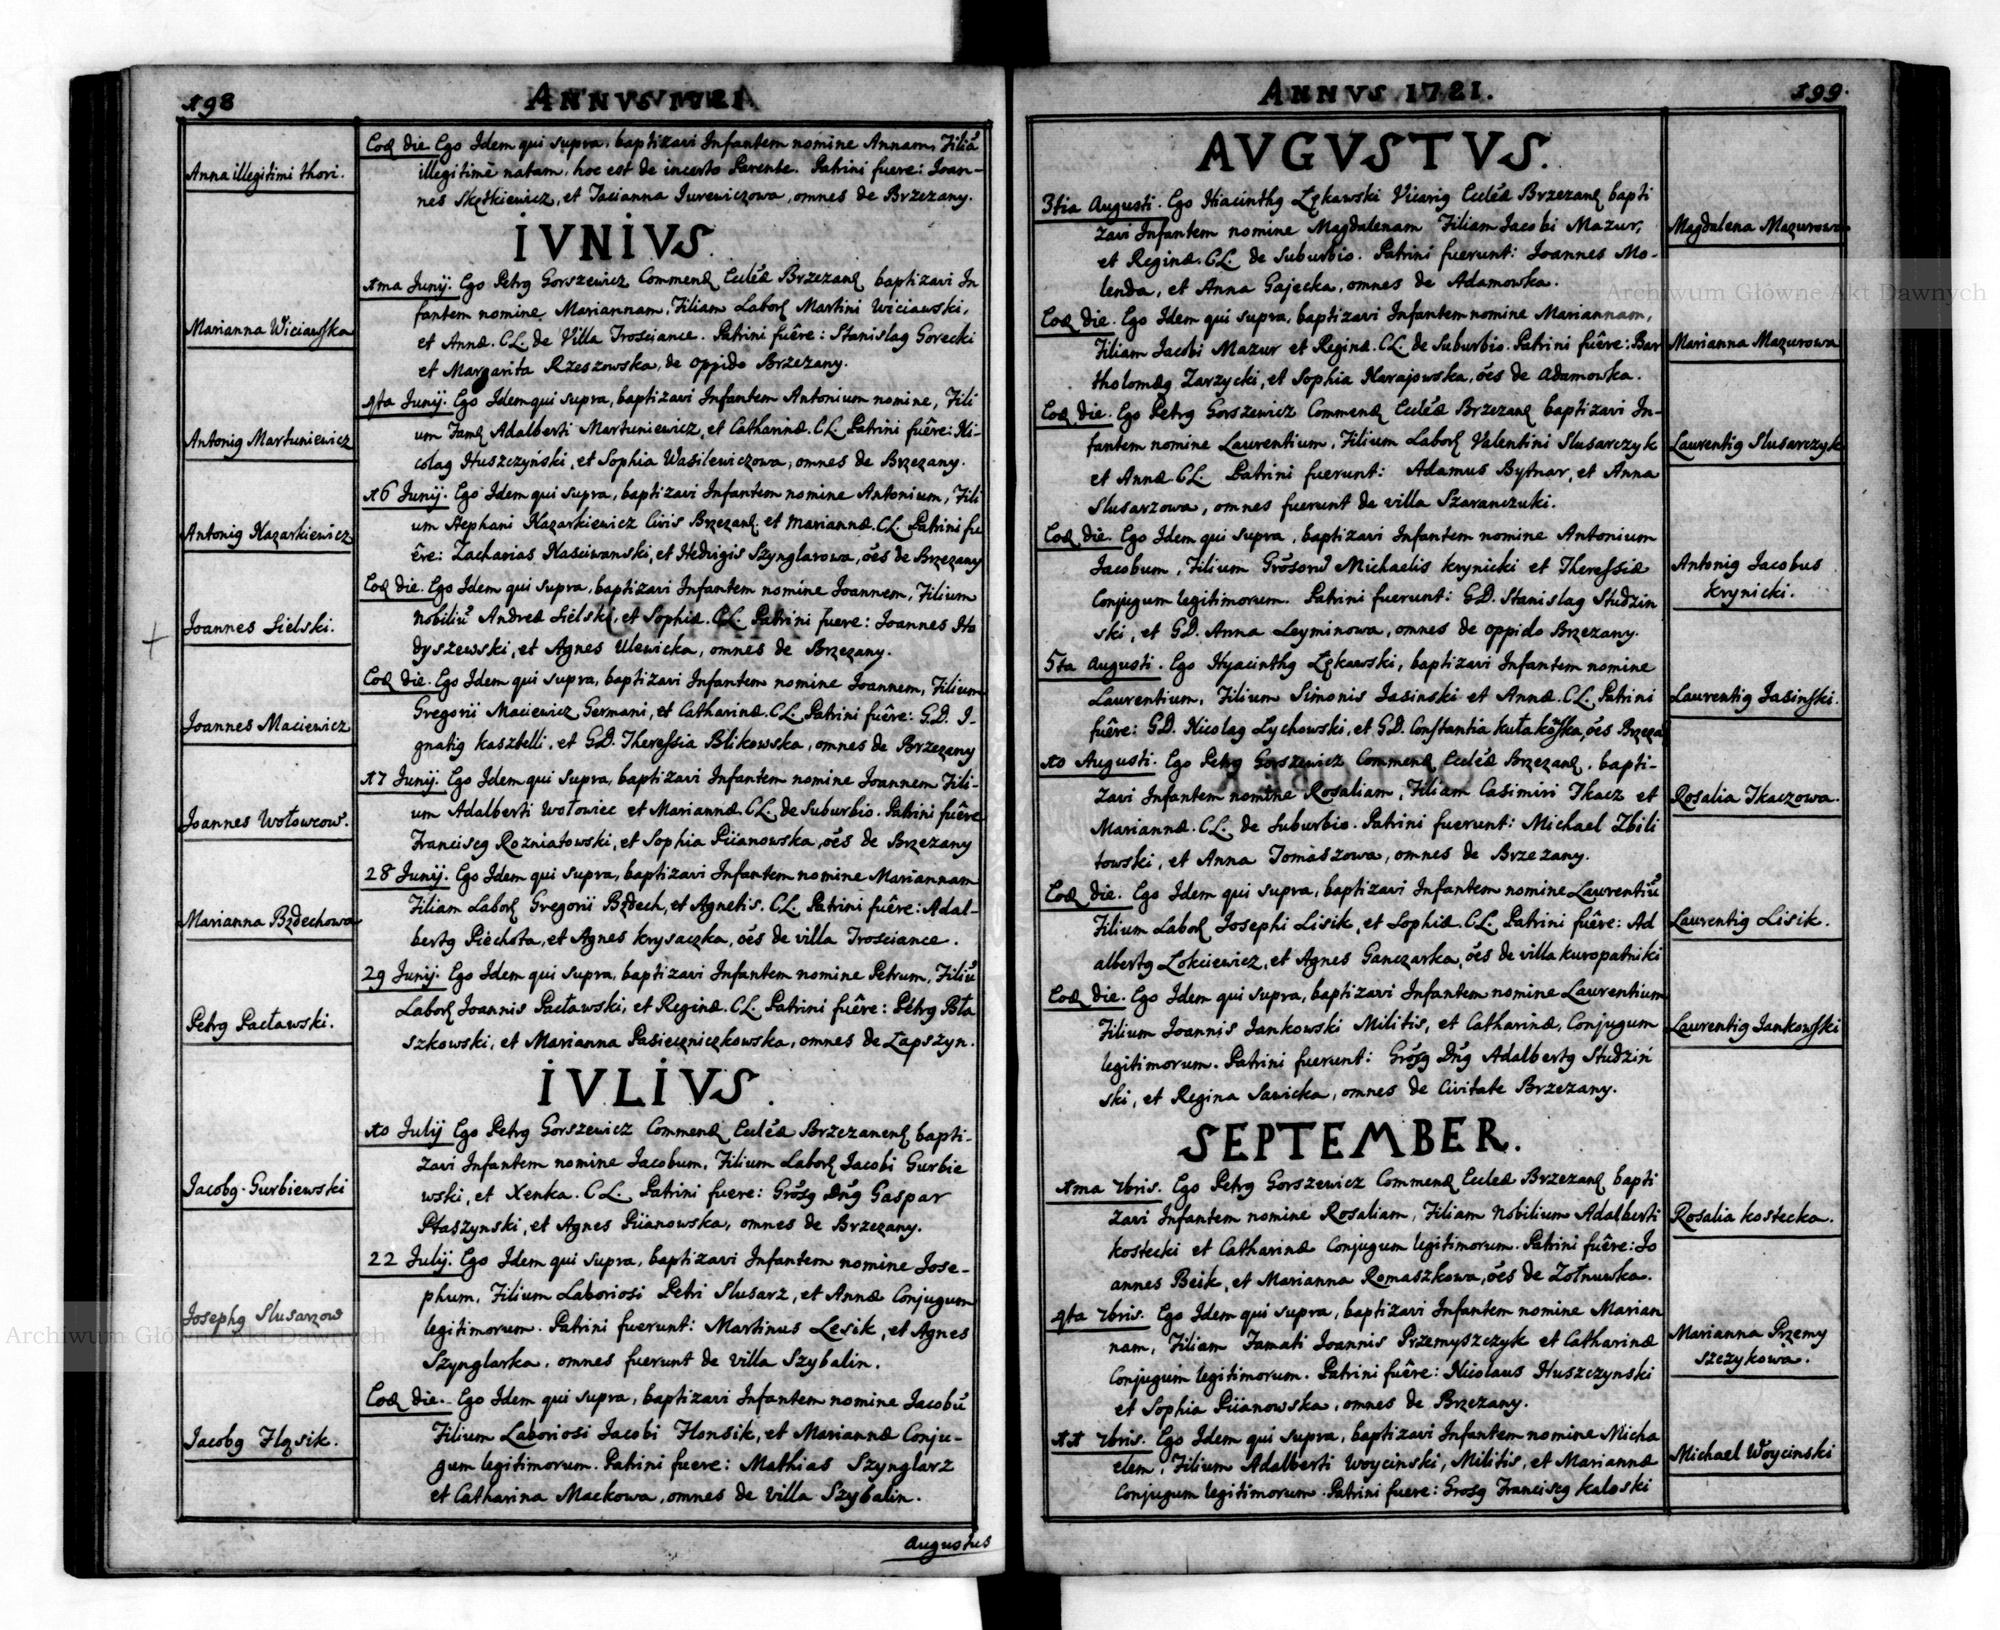 198
ANNVS 1721
Anna illegitimi thori.
Eod die. Ego Idem qui supra, baptizavi Infantem nomine Annam, Filiã
illegitimè natam, hoc est de incerto Parente. Patrini fuere: Joan-
nes Skętkiewicz, et Tacianna Jurewiczowa, omnes de Brzezany.
IVNIVS.
Marianna Wiciawska
1ma Junij. Ego Petrg Gorszewicz Commend Ecclẽæ Brzezanę baptizavi In
fantem nomine Mariannam, Filiam Laborę Martini Wiciawski,
et Annæ. CL. de Villa Trosciance. Patrini fuêre: Stanislag Gorecki
et Margarita Rzeszowska, de oppido Brzezany.
Antonig Martuniewicz
4ta Junij. Ego Idem qui supra, baptizavi Infantem Antonium nomine, Fili
um Famę Adalberti Martuniewicz, et Catharinæ. CL. Patrini fuêre: Ni-
colag Huszczyński, et Sophia Wasilewiczowa, omnes de Brzezany.
Antonig Nazarkiewicz
16 Junij. Ego Idem qui supra, baptizavi Infantem nomine Antonium, Fili
um Stephani Nazarkiewicz Civis Brzezanę et Mariannæ. CL. Patrini fu
êre: Zacharias Nasciwanski, et Hedvigis Szynglarowa, óẽs de Brzezany
Joannes Sielski.
Eod die. Ego Idem qui supra, baptizavi Infantem nomine Joannem, Filium
Nobiliũ Andreæ Sielski, et Sophiæ. CL. Patrini fuere: Joannes Ha
dyszewski, et Agnes Ulewicka, omnes de Brzezany.
Joannes Maciewicz
Eod die. Ego Idem qui supra, baptizavi Infantem nomine Joannem, Filium
Gregorii Maciewicz Germani, et Catharinæ. CL. Patrini fuêre: GD. I-
gnatig Kasztelli, et GD. Theressia Blikowska, omnes de Brzezany
Joannes Wołowcow.
17 Junij. Ego Idem qui supra, baptizavi Infantem nomine Joannem Fili-
um Adalberti Wołowiec et Mariannæ. CL. de Suburbio. Patrini fuêre
Francisg Rozniatowski, et Sophia Piianowska, óẽs de Brzezany
Marianna Bzdechowa
28 Junij. Ego Idem qui supra, baptizavi Infantem nomine Mariannam
Filiam Laborę Gregorii Bzdech, et Agnetis. CL. Patrini fuêre: Adal-
bertg Piechota, et Agnes Krysaczka, óẽs de villa Trosciance.
Petrg Pacławski.
29 Junij. Ego Idem qui supra, baptizavi Infantem nomine Petrum, Filiũ
Laborę Joannis Pacławski, et Reginæ. CL. Patrini fuêre: Petrg Bła
szkowski, et Marianna Pasieczniczkowska, omnes de Łapszyn.
IVLIVS.
Jacobg Gurbiewski
10 Julij Ego Petrg Gorszewicz Commend Ecclẽæ Brzezanenę bapti-
zavi Infantem nomine Jacobum, Filium Laborę Jacobi Gurbie
wski, et Xenka. CL. Patrini fuere: Grõsg Dñg Gaspar
Ptaszynski, et Agnes Piianowska, omnes de Brzezany.
Josephg Slusarzow
22 Julij. Ego Idem qui supra, baptizavi Infantem nomine Jose-
phum, Filium Laboriosi Petri Slusarz, et Annæ Conjugum
legitimorum. Patrini fuerunt: Martinus Lesik, et Agnes
Szynglarka, omnes fuerunt de villa Szybalin.
Jacobg Fląsik.
Eod die. Ego Idem qui supra, baptizavi Infantem nomine Jacobũ
Filium Laboriosi Jacobi Flonsik, et Mariannæ Conju-
gum legitimorum. Patrini fuere: Mathias Szynglarz
et Catharina Mackowa, omnes de villa Szybalin.
Augustus
ANNVS 1721.
199.
AVGVSTVS.
3tia Augusti. Ego Hiacinthg Łękawski Vicarig Ecclẽæ Brzezanę bapti
zavi Infantem nomine Magdalenam Filiam Jacobi Mazur,
et Reginæ. CL. de Suburbio. Patrini fuerunt: Joannes Mo-
lenda, et Anna Gajecka, omnes de Adamowka.
Magdalena Mazurowa
Eod die. Ego Idem qui supra, baptizavi Infantem nomine Mariannam,
Filiam Jacobi Mazur et Reginæ. CL. de Suburbio. Patrini fuêre: Bar
tholomæg Zarzycki, et Sophia Narajowska, óẽs de Adamowka.
Marianna Mazurowa
Eod die. Ego Petrg Gorszewicz Commend Ecclẽæ Brzezanę baptizavi In-
fantem nomine Laurentium, Filium Laborę Valentini Slusarczyk
et Annæ. CL. Patrini fuerunt: Adamus Bytnar, et Anna
Slusarzowa, omnes fuerunt de villa Szaranczuki.
Laurentig Slusarczyk
Eod die. Ego Idem qui supra, baptizavi Infantem nomine Antonium
Jacobum, Filium Grõsorũ Michaelis Krynicki et Theressiæ
Conjugum legitimorum. Patrini fuerunt: GD. Stanislag Studzin
ski, et GD. Anna Leyminowa, omnes de oppido Brzezany.
Antonig Jacobus
Krynicki.
5ta Augusti. Ego Hyacinthg Łękawski, baptizavi Infantem nomine
Laurentium, Filium Simonis Jasinski et Annæ. CL. Patrini
fuêre: GD. Nicolag Lychowski, et GD. Constantia Kułakoska, óẽs Brzeza
Laurentig Jasinski.
10 Augusti. Ego Petrg Gorszewicz Commend Ecclẽæ Brzezanę. bapti-
zavi Infantem nomine Rosaliam, Filiam Casimiri Tkacz et
Mariannæ. CL. de Suburbio. Patrini fuerunt: Michael Zbili
towski, et Anna Tomaszowa, omnes de Brzezany.
Rosalia Tkaczowa.
Eod die. Ego Idem qui supra, baptizavi Infantem nomine Laurentiũ
Filium Laborę Josephi Lisik, et Sophiæ. CL. Patrini fuêre: Ad
albertg Lokciewicz, et Agnes Ganczarka, óẽs de villa Kuropatniki
Laurentig Lisik.
Eod die. Ego Idem qui supra, baptizavi Infantem nomine Laurentium
Filium Joannis Jankowski Militis, et Catharinæ, Conjugum
legitimorum. Patrini fuerunt: Grõsg Dñg Adalbertg Studziń
ski, et Regina Sawicka, omnes de Civitate Brzezany.
Laurentig Jankowski
SEPTEMBER.
1ma 7bris. Ego Petrg Gorszewicz Commend Ecclẽæ Brzezanę bapti
zavi Infantem nomine Rosaliam, Filiam Nobilium Adalberti
Kostecki et Catharinæ Conjugum legitimorum. Patrini fuêre: Jo
annes Beik, et Marianna Romaszkowa, óẽs de Zołnuwka.
Rosalia Kostecka.
4ta 7bris. Ego Idem qui supra, baptizavi Infantem nomine Marian
nam, Filiam Famati Joannis Przemyszczyk et Catharinæ
Conjugum legitimorum. Patrini fuêre: Nicolaus Huszczynski
et Sophia Piianowska, omnes de Brzezany.
Marianna Przemy
szczykowa.
11 7bris. Ego Idem qui supra, baptizavi Infantem nomine Micha
elem, Filium Adalberti Woycinski, Militis, et Mariannæ
Conjugum legitimorum. Patrini fuêre: Grosg Francisg Kaloski
Michael Woycinski
Archiwum Główne Akt Dawnych
Archiwum Główne Akt Dawnych